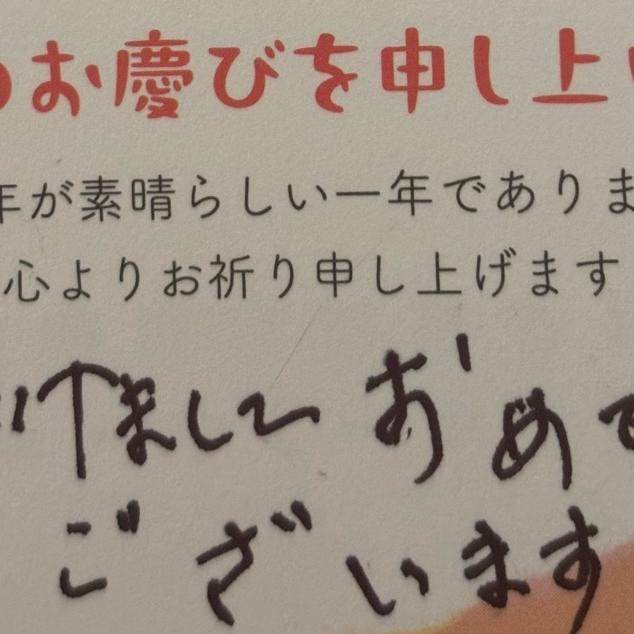 お慶びを申し上
年が素晴らしい一年でありま
心よりお祈り申し上げます
けましておめで
ございます